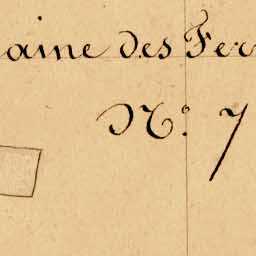 aine des Fer
N.º 7